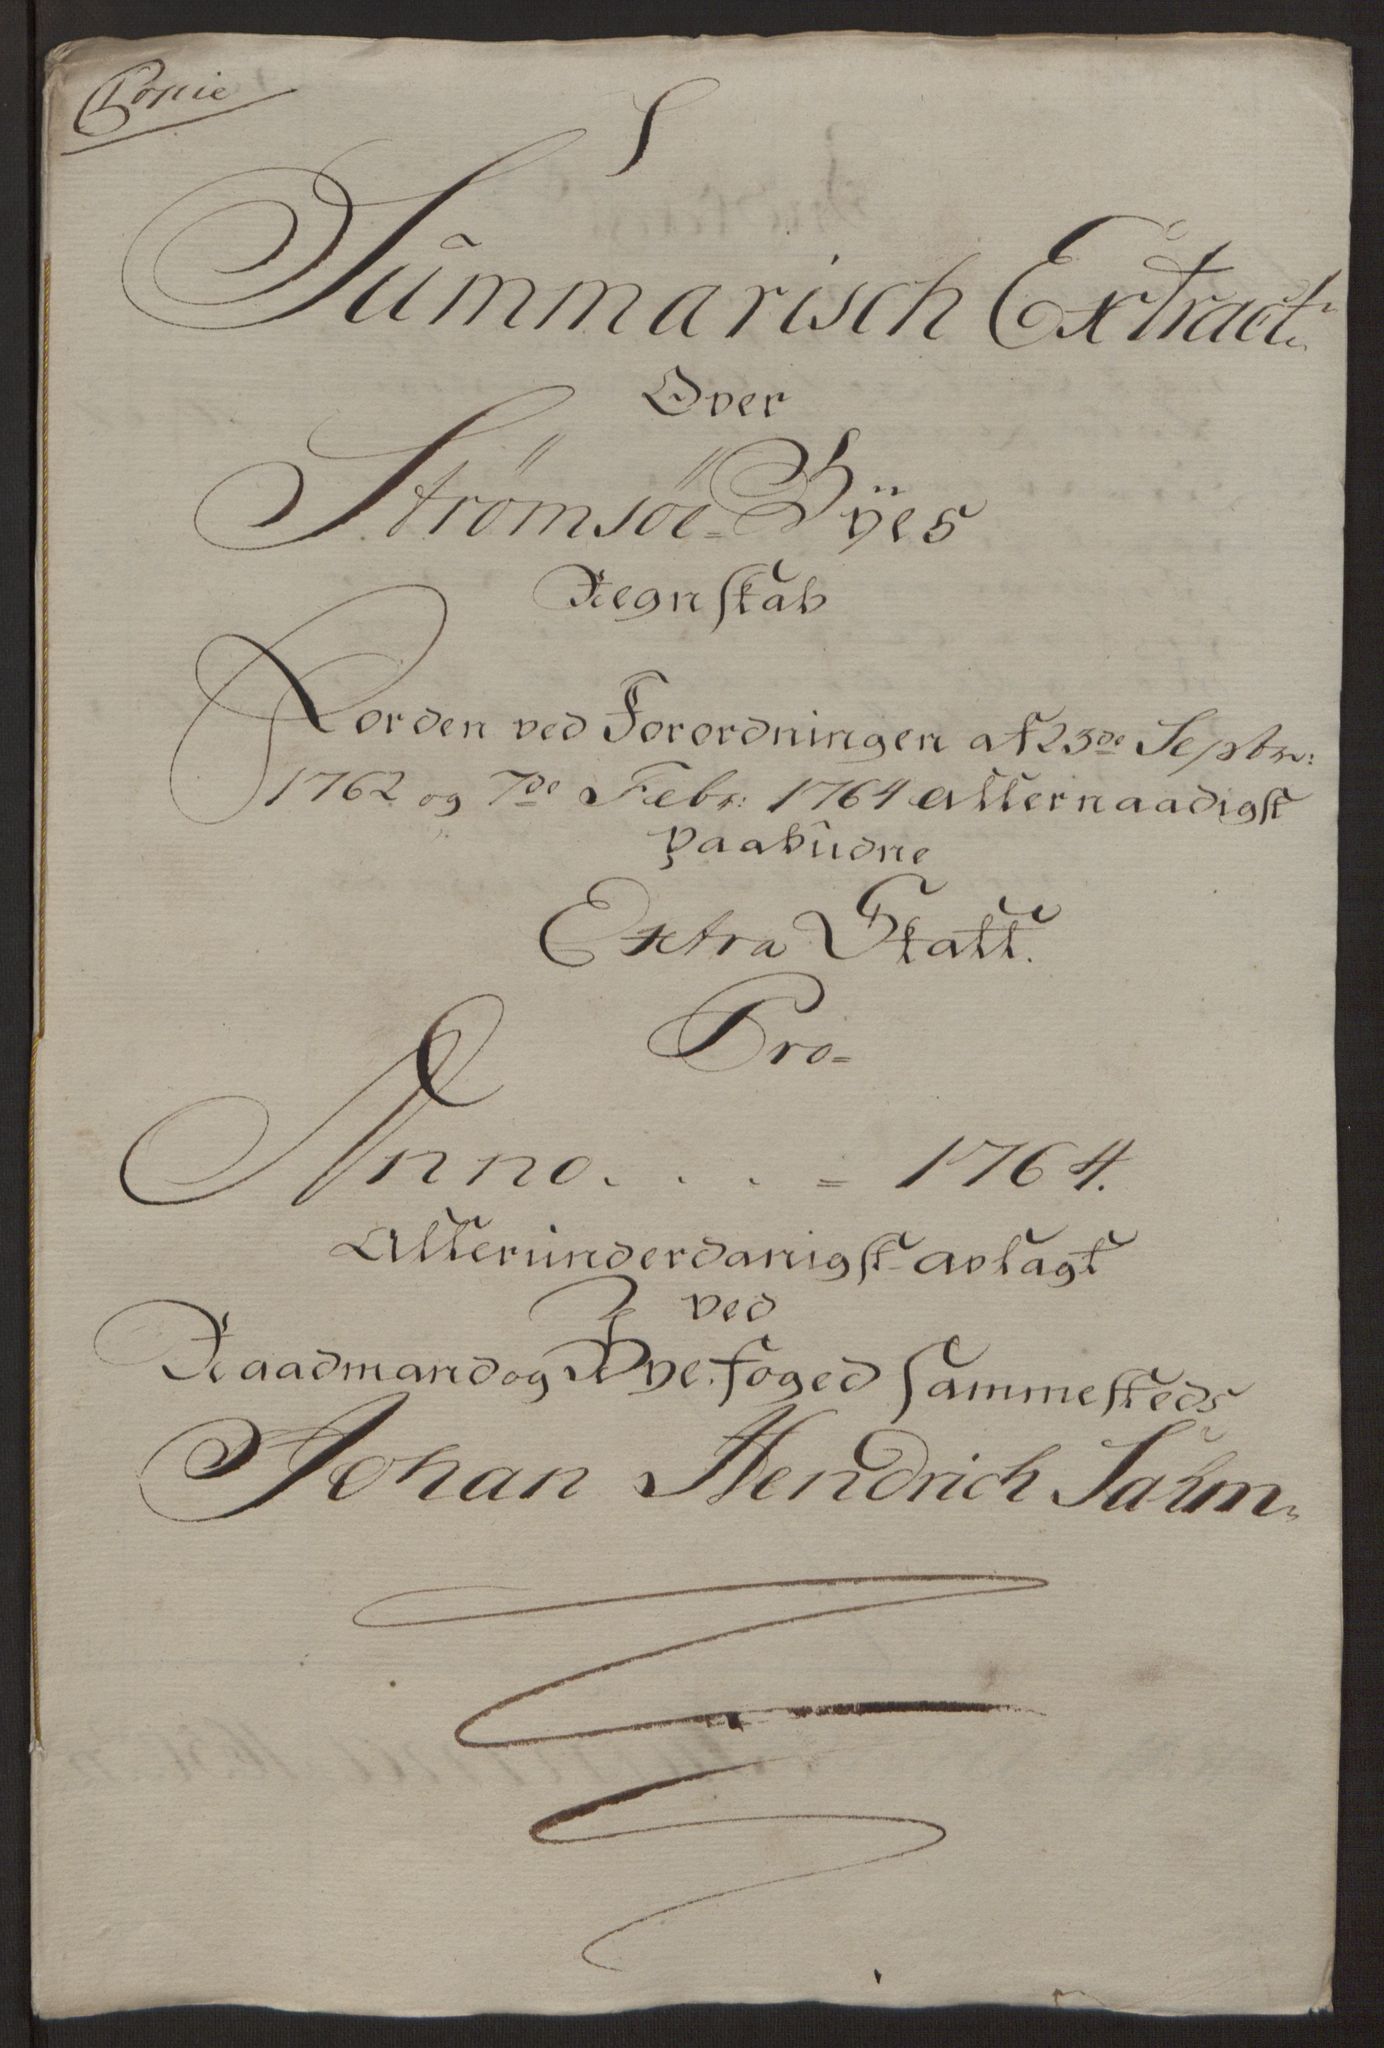 Copie
S
Summarisch Extract
Over
Strømsøe= Byes
Regnskab
for den ved Forordningen af 23de Septr:
1762 og 7de Febr: 1764 allernaadigst
paabudne
Extra Skatt.
Pro=
Anno. . . . = 1764.
Allerunderdanigst avlagt
ved
Raadmand og Bye foged sammesteds
Johan Hendrich